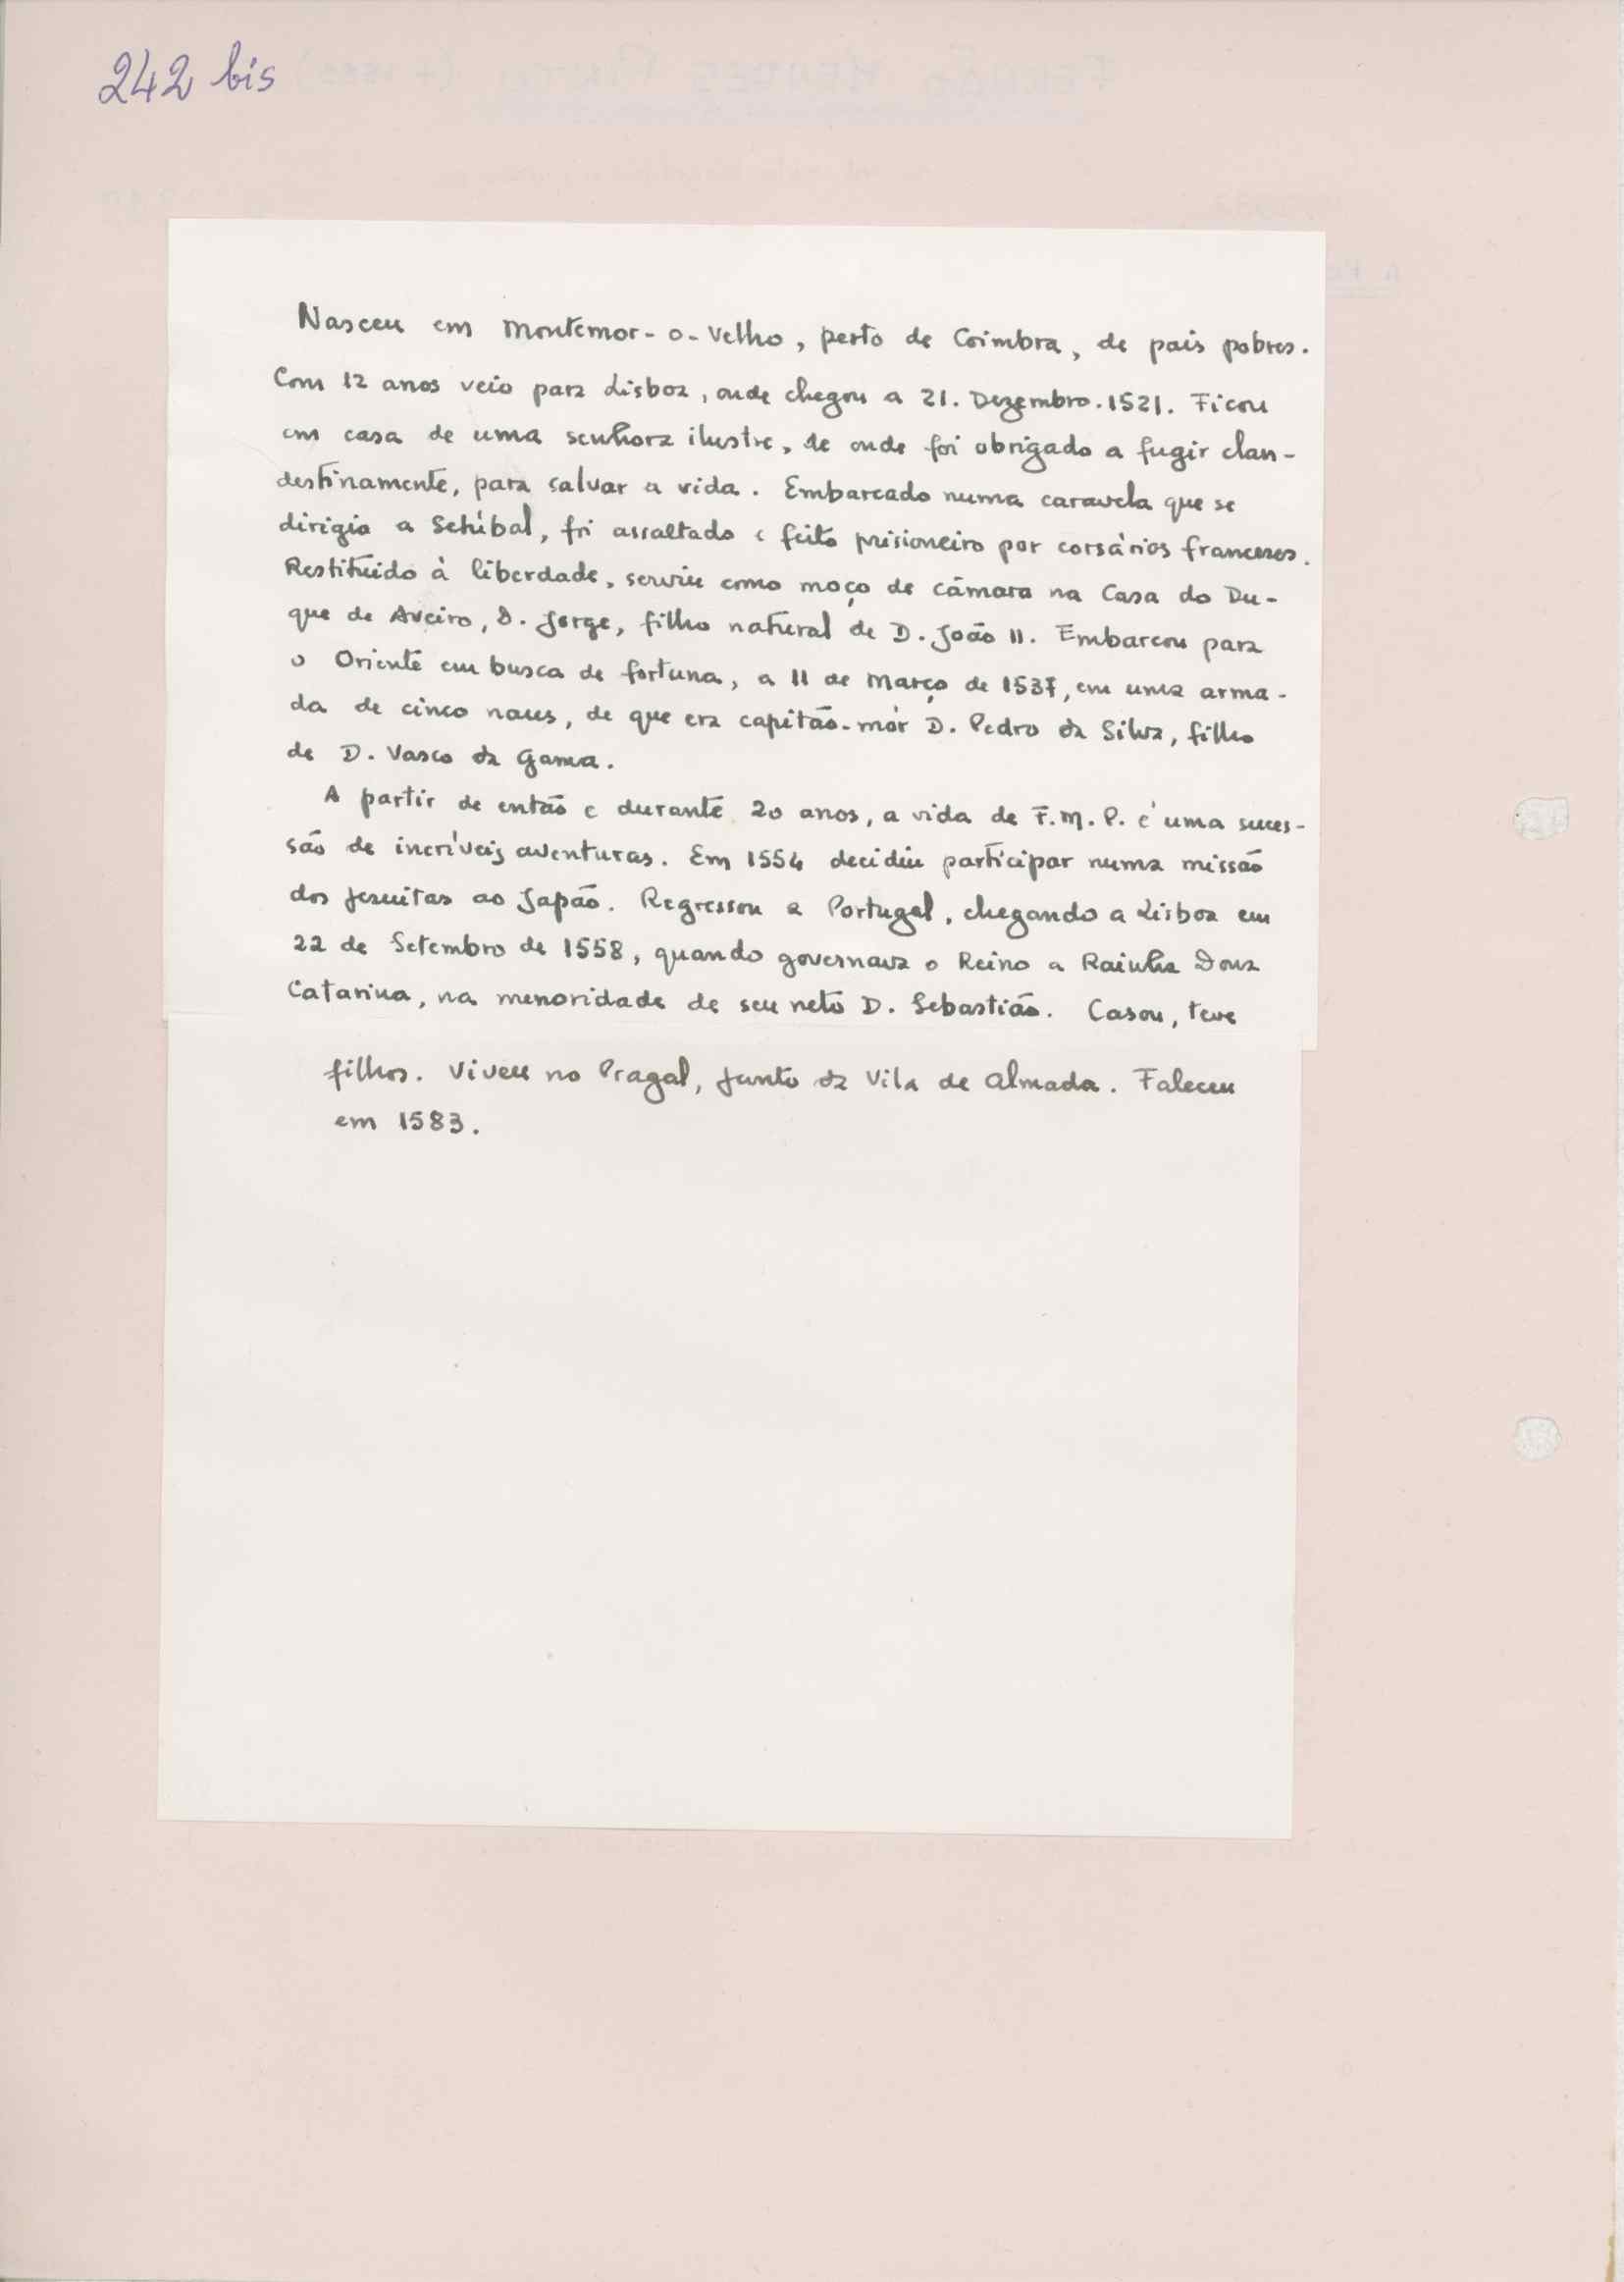 242 bis
Nasceu em Montemor-o-Velho, perto de Coimbra, de pais pobres.
Com 12 anos veio para Lisboa, onde chegou a 21. Dezembro. 1521. Ficou
em casa de uma senhora ilustre, de onde foi obrigado a fugir clan-
destinamente, para salvar a vida. Embarcado numa caravela que se
dirigia a Setúbal, foi assaltado e feito prisioneiro por corsários franceses.
Restituido à liberdade, serviu como moço de câmara na Casa do Du-
que de Aveiro, D. Jorge, filho natural de D. João II. Embarcou para
o Oriente em busca de fortuna, a 11 de Março de 1537, em uma arma-
da de cinco naus, de que era capitão-mór D. Pedro da Silva, filho
de D. Vasco da Gama.
A partir de então e durante 20 anos, a vida de F. M. P. é uma suces-
são de incríveis aventuras. Em 1554 decidiu participar numa missão
dos jesuitas ao Japão. Regressou a Portugal, chegando a Lisboa em
22 de Setembro de 1558, quando governava o Reino a Rainha Dona
Catarina, na menoridade de seu neto D. Sebastião. Casou, teve
filhos. Viveu no Pragal, junto da Vila de Almada. Faleceu
em 1583.